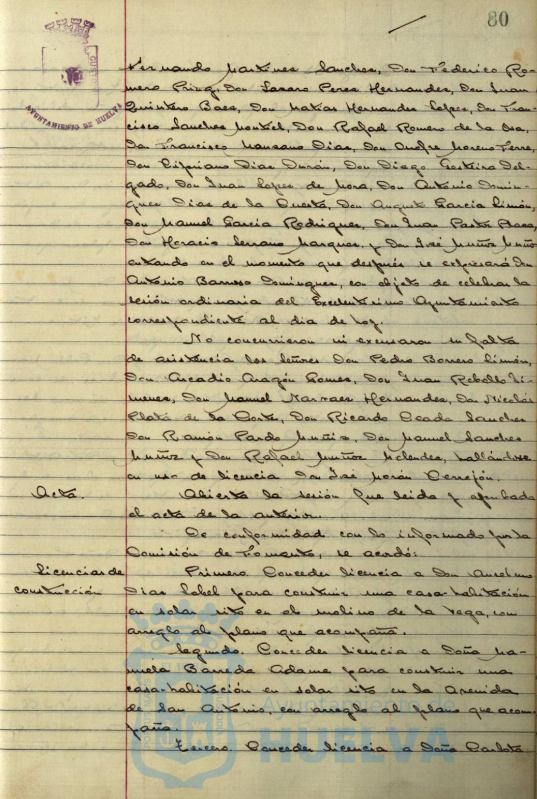 80
AYUNTAMIENTO DE HUELVA
Fernando Martinez Sanchez, Don Federico Ro-
mero Don Lazaro Perez Hernandez, Don Juan
Quintero Baez, Don Matias Hernandez Lopez, Don Fran-
cisco Sanchez Montiel, Don Rafael Romero de la Osa,
Don Francisco Manzano Diaz, Don Onofre Moreno Terre,
Don Cipriano Diaz Durán, Don Diego Garteiro Del-
gado, Don Juan Lopez de Mora, Don Antonio Domin-
guez Diaz de la Cuesta, Don Augusto Garcia Limón,
Don Manuel Garcia Rodriguez, Don Juan Pastor
Don Horacio Serrano Marquez, y Don José Muñoz Muñoz
entrando en el momento que después se expresará Don
Antonio Barroso Dominguez, con objeto de celebrar la
sesión ordinaria del Excelentisimo Ayuntamiento
correspondiente al dia de hoy.
No concurrieron ni excusaron su falta
de asistencia los señores Don Pedro Borrero Limón,
Don Arcadio Aragón Gomez, Don Juan Rebollo Ji-
menez, Don Manuel Narvaez Hernandez, Don Nicolás
Plata de la Corte, Don Ricardo Sanchez
Don Ramón Pardo Muñiz, Don Manuel Sanchez
Muñoz y Don Rafael Muñoz Melendez, hallándose
en uso de licencia Don José Morón Cerrejón.
Acta. Abierta la sesión fue leida y aprobada
el acta de la anterior.
De conformidad con lo informado por la
Comisión de Fomento, se acordó:
Licencias de Primero. Conceder licencia a Don Anselmo
construcción Diaz para construir una casa-habitación
en solar sito en el molino de la Vega, con
arreglo al plano que acompaña.
Segundo. Conceder licencia a Doña Ma-
nuela Barreda Adame para construir una
casa-habitación en solar sito en la Avenida
de San Antonio, con arreglo al plano que acom-
paña.
Tercero. Conceder licencia a Doña Carlota
Ayuntamiento
HUELVA